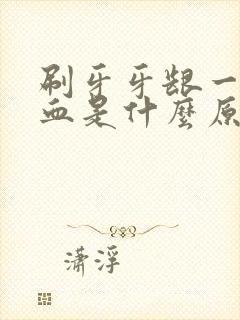 刷牙牙龈一
血是什麼原
潇浮